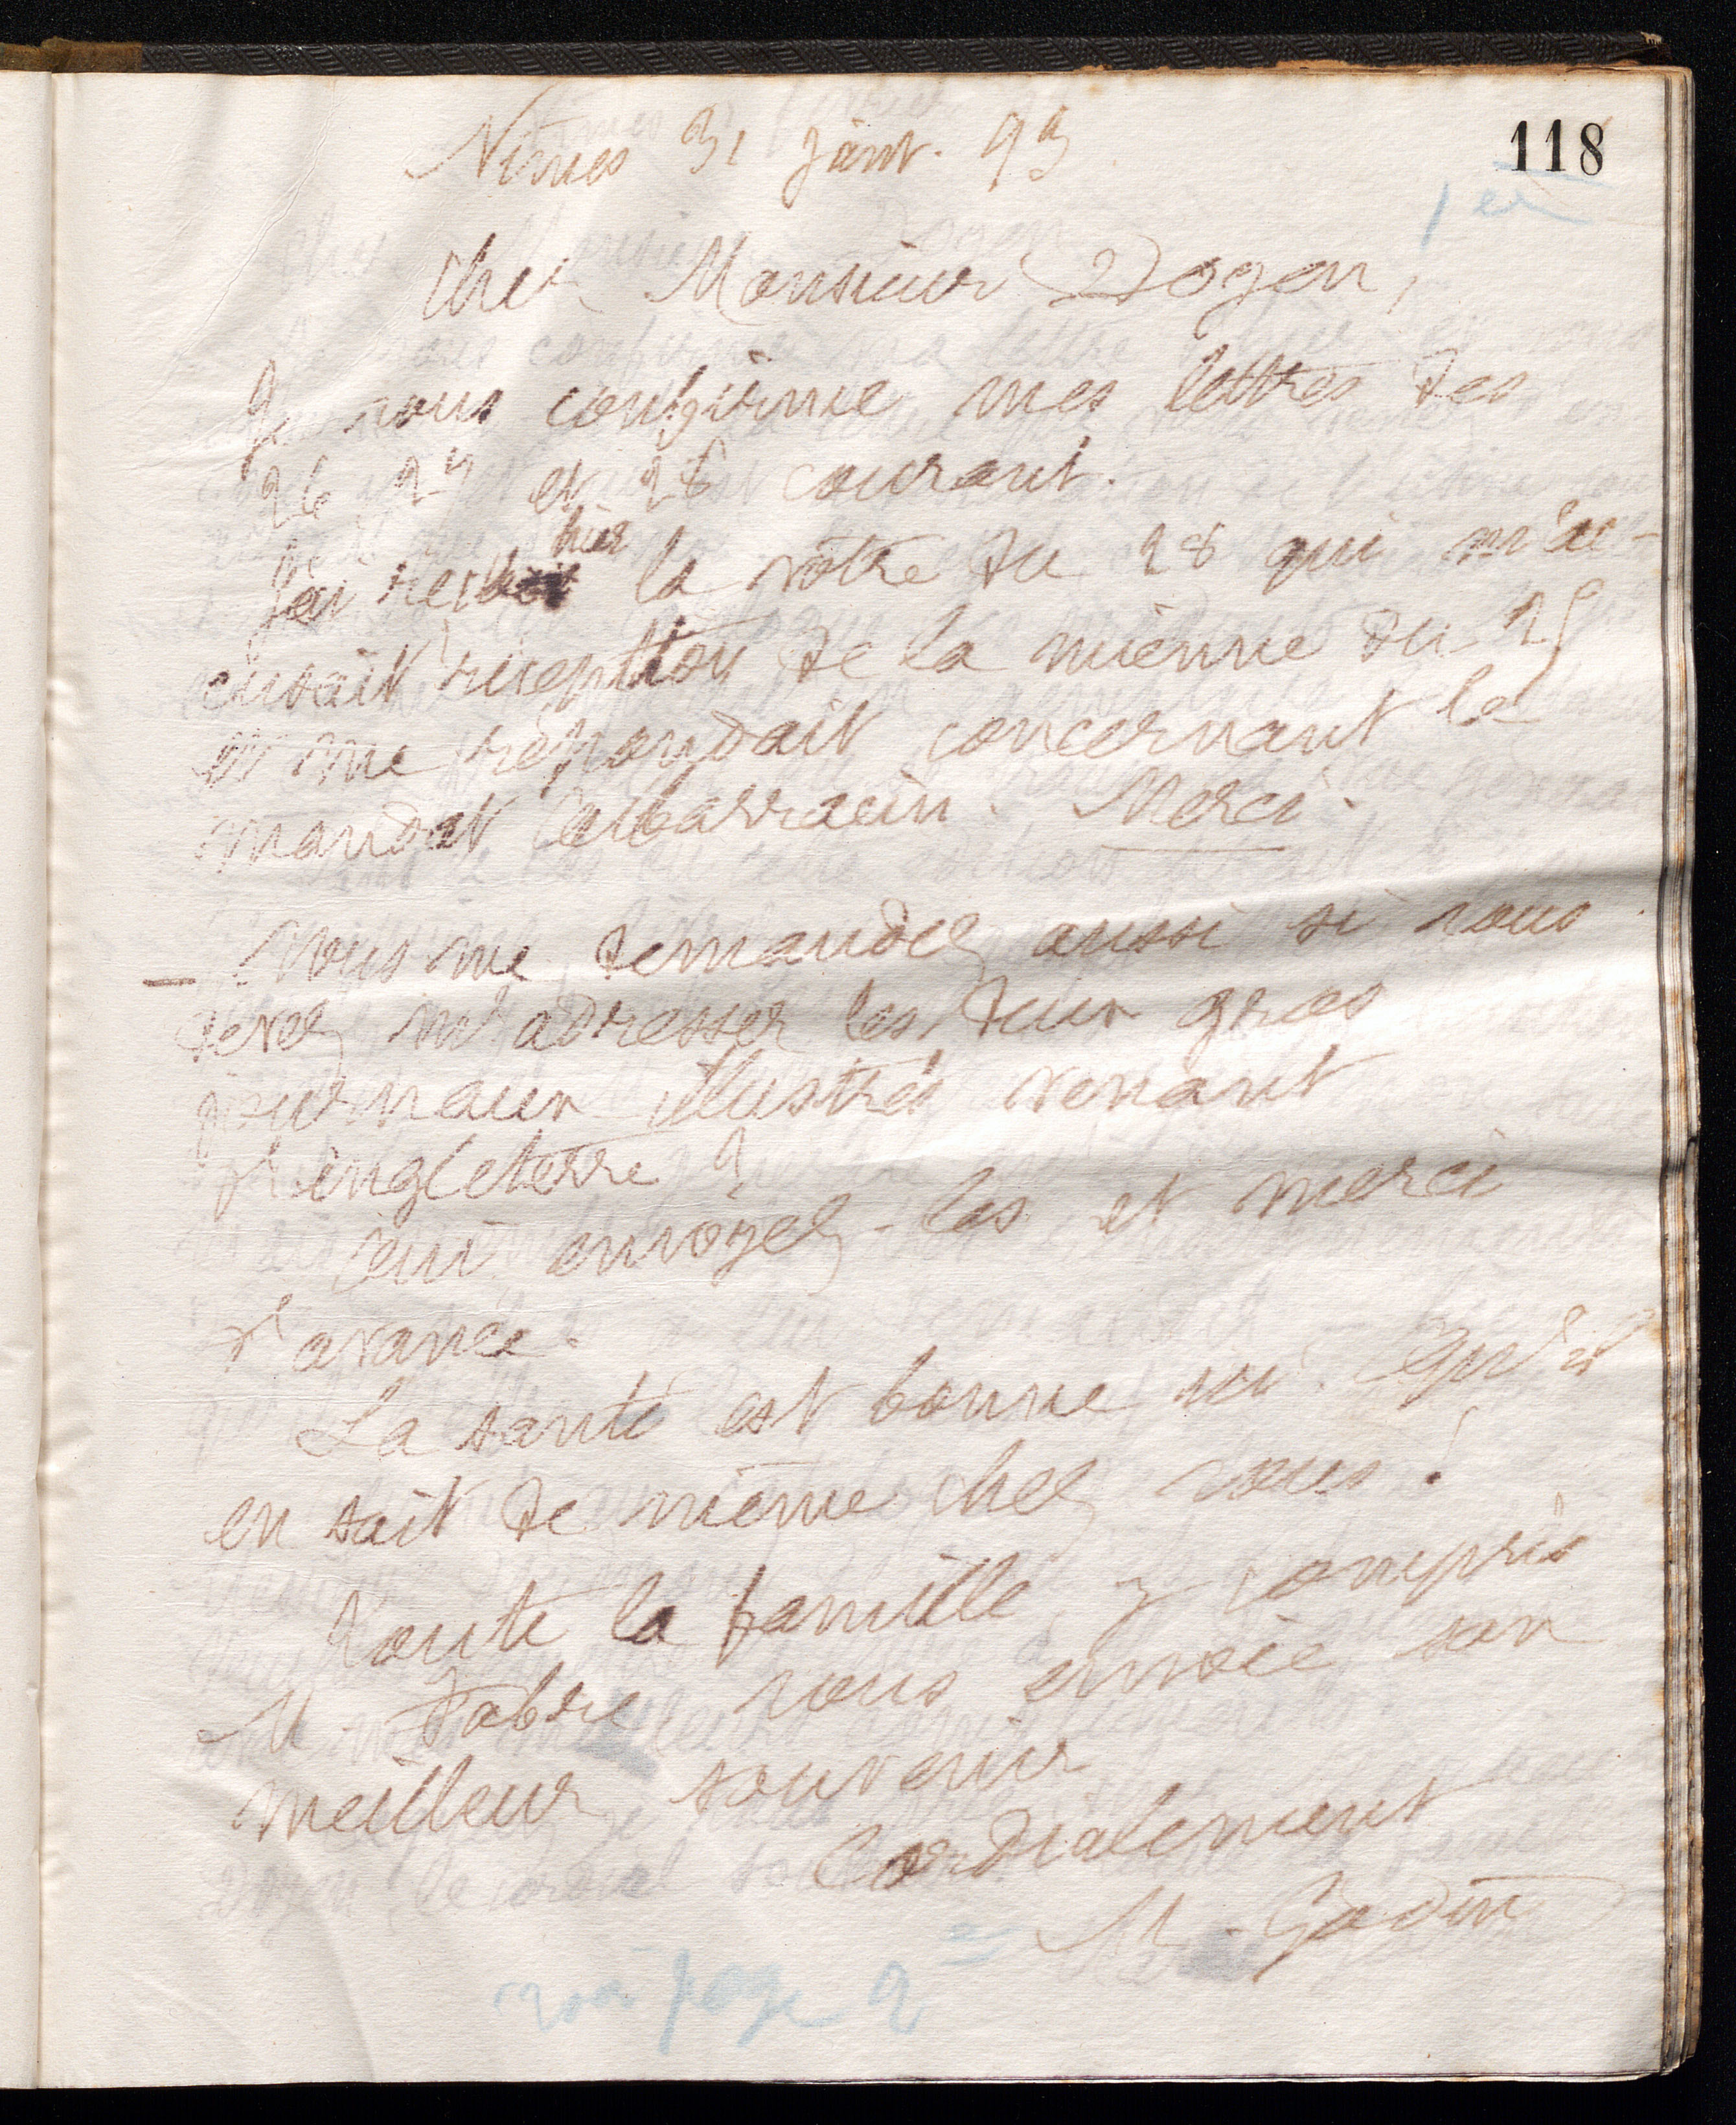 118
Nîmes 31 janv. 93
1er
Cher Monsieur Doyen,
Je vous confirme mes lettres des
26 27 et 28 courant.
J'ai reçu hier la vôtre du 28 qui m'ac-
cusait réception de la mienne du 25
et me répondait concernant le
mandat Albarracin. Merci.
— Vous me demandez aussi si vous
devez m'adresser les deux gros
journaux illustrés venant
d'ingleterre ?
oui envoyez-les et merci
d'avance.
La santé est bonne ici. Qu'il
en soit de même chez vous !
Toute la famille, y compris
M. Fabre vous envoie son
meilleur souvenir
Cordialement
M. Godin
voir page 2e